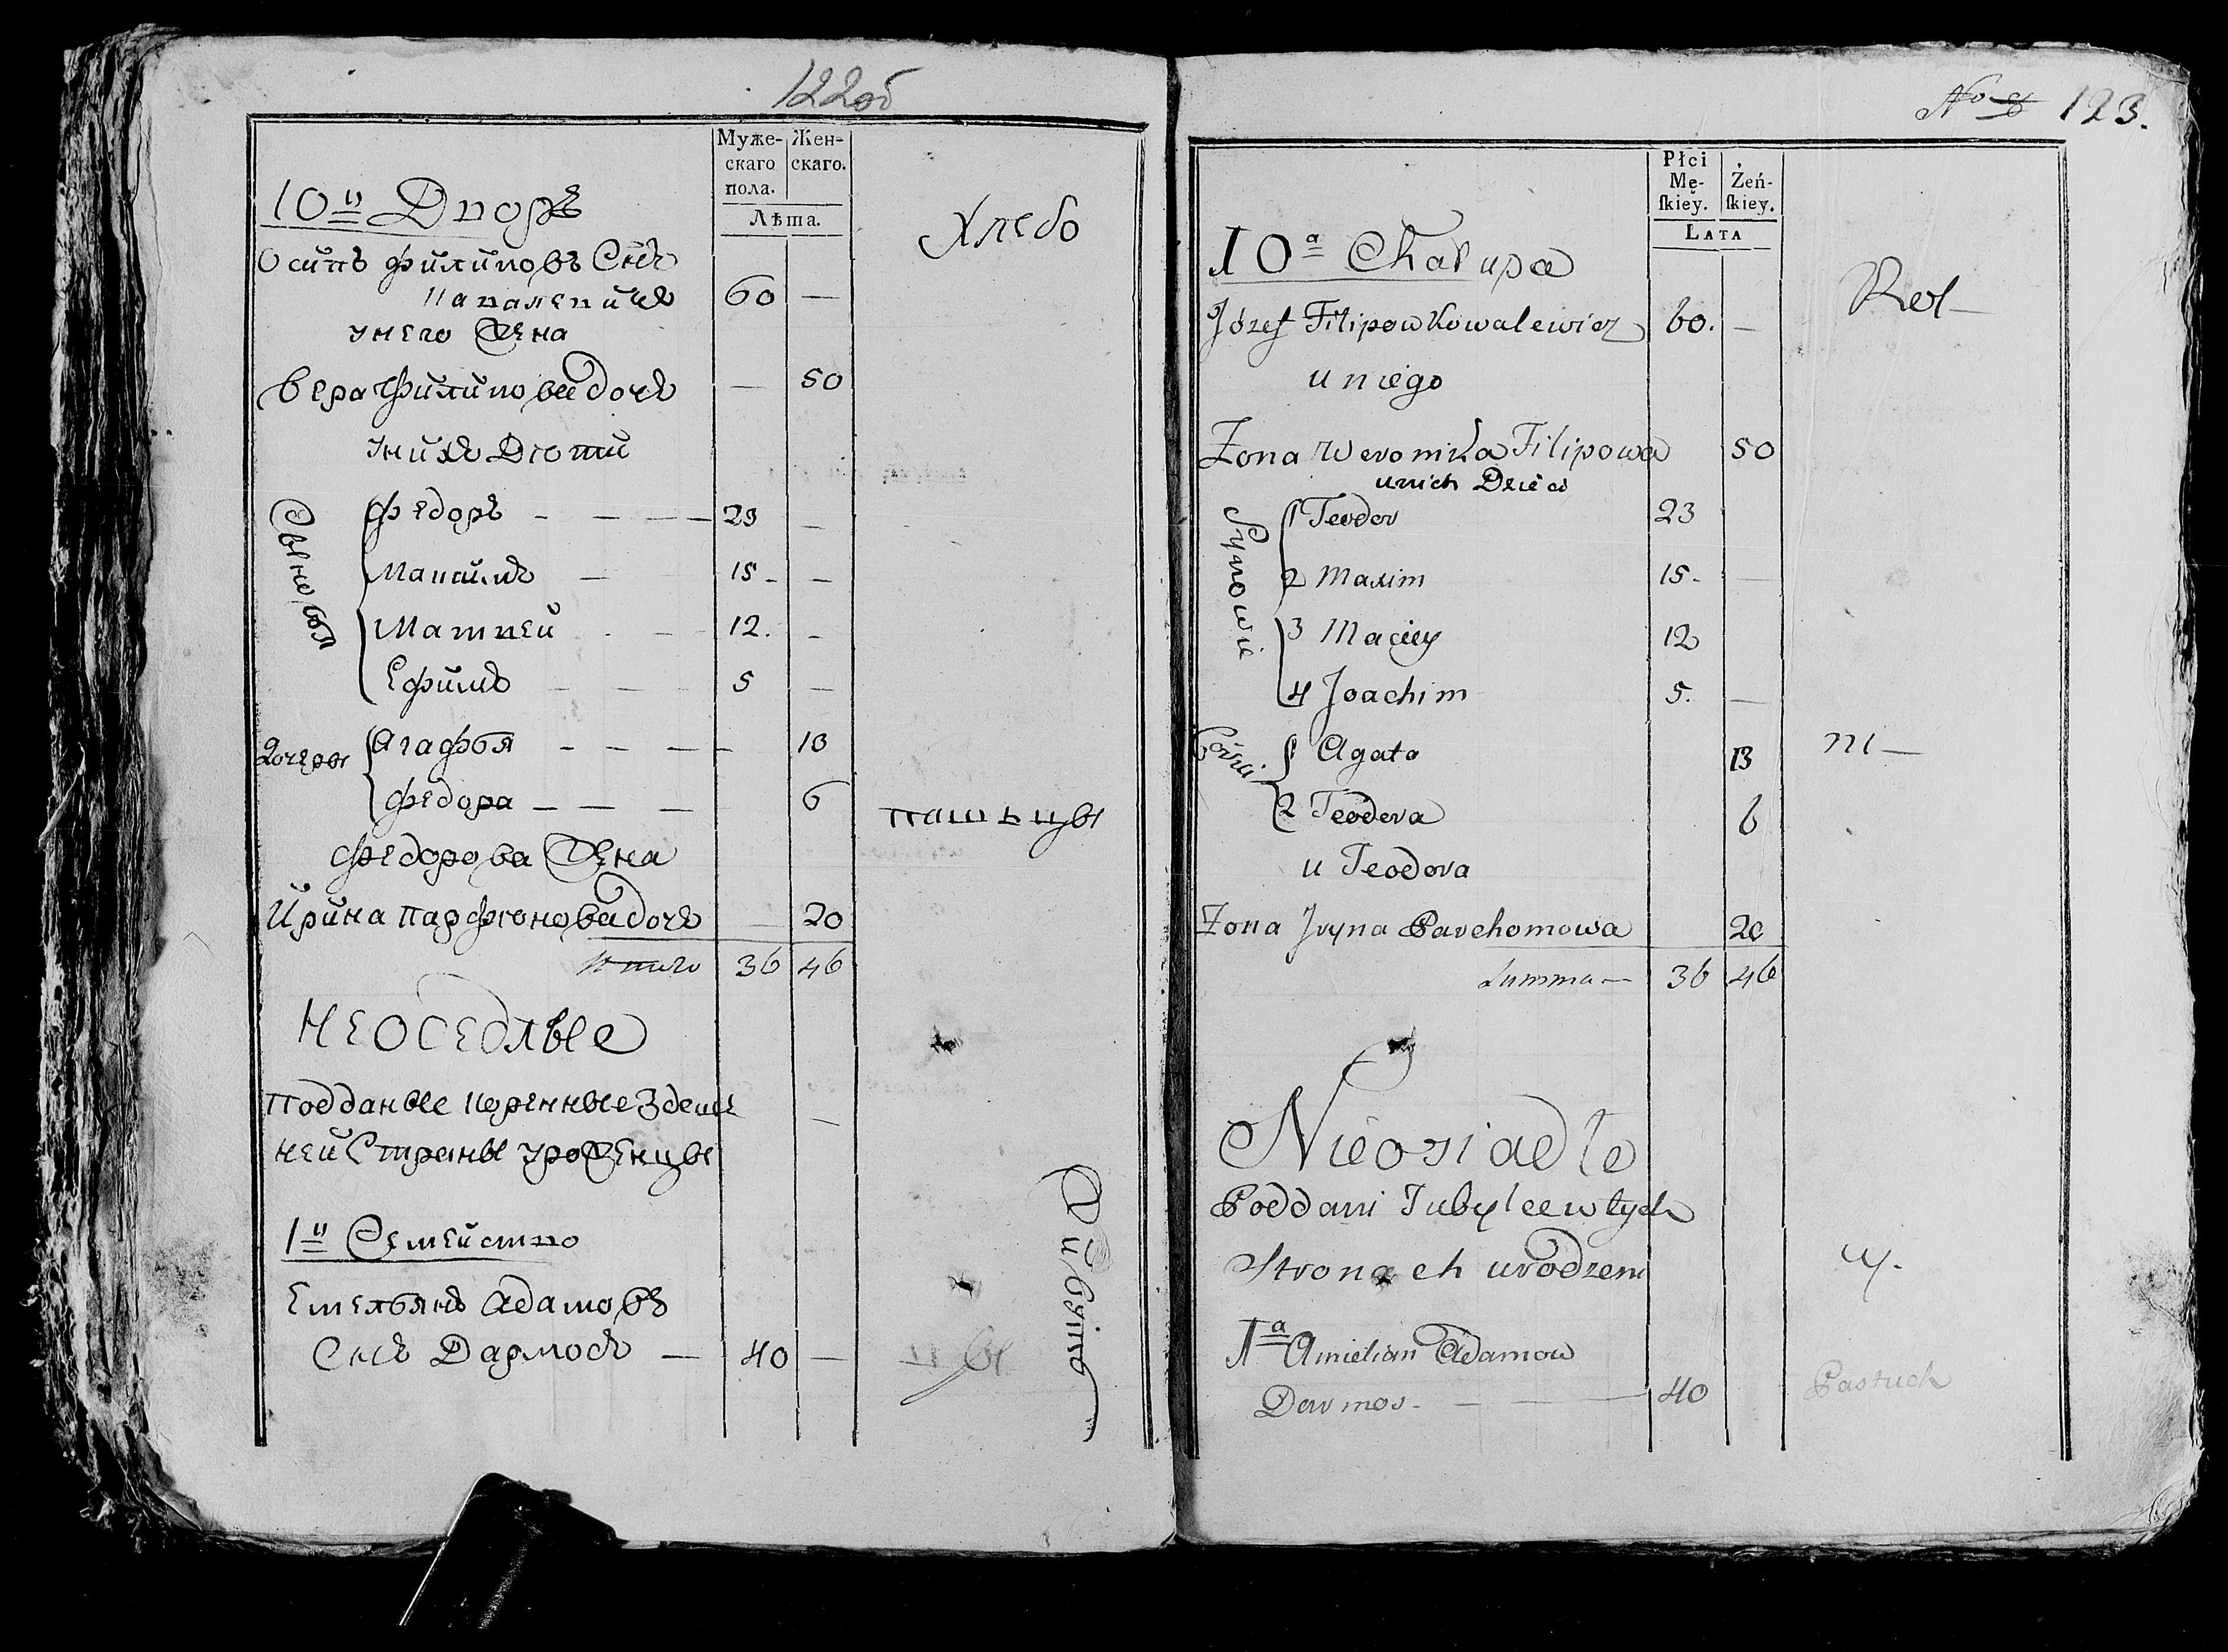 122об
Муже-
скаго
пола.
Жен-
скаго.
Лѣта.
10й Дворъ
Хлебо
Осипъ Филиповъ Снъ
Ковалевичъ
60 —
у него Жена
Вера Филипова дочь — 50
у нихъ Дѣти
Сыновья
Федоръ - - - - 23 —
Максимъ — 15 - —
Матвей - - 12. -
Ефимъ - - - 5 —
Дочери
Агафья - - - - 13
Федора — — — 6
пашьцы
Федорова Жена
Ирина Парфѣнова дочь — 20
Итого 36 46
Неоседлые
Подданые коренные Здеш
ней Страны уроженцы
1й Семейство
Емельянъ Адамовъ
Снъ Дармосъ — 40 —
No 8 123.
Płci
Mę-
ſkiey.
Żeń-
ſkiey.
Lata
10a Chałupa
Rol—
Józef Filipow Kowalewicz 60. —
u niego
Żona Weronika Filipowa 50
u nich Dzieci
Synowie
1 Teodor 23
2 Maxim 15. —
3 Maciey 12
4 Joachim 5. —
Córki
1 Agata 13
ni—
2 Teodora 6
u Teodora
Żona Jryna Parchomowa 20
Summa — 36 46
Nieosiadłe
Poddani Tubylce w tych
Stronach urodzeni
cy.
1a Amielian Adamow
Darmos. — — 40
Pastuch